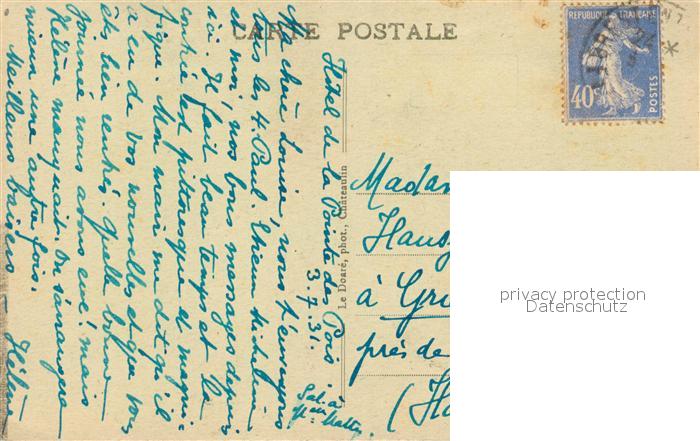 CARTE POSTALE
REPUBLIQUE FRANÇAISE
40c
POSTES
Hôtel de la Pointe des Pois
3.7.31.
Ma chère Louise, nous t'envoyons
tous les 4, Paul
et moi, nos bons messages depuis
ici. Il fait beau temps et la
contrée est pittoresque et magni-
fique. Mon mari me dit qu'il
a eu de vos nouvelles et que vous
êtes bien rentrés. Quelle bonne
journée nous avons eue! mais
Hélène manquait. On s'arrangera
mieux une autre fois.
Meilleurs baisers Hélène
Le Doaré, phot., Châteaulin
Madam
à
près de
(Ha
privacy protection
Datenschutz